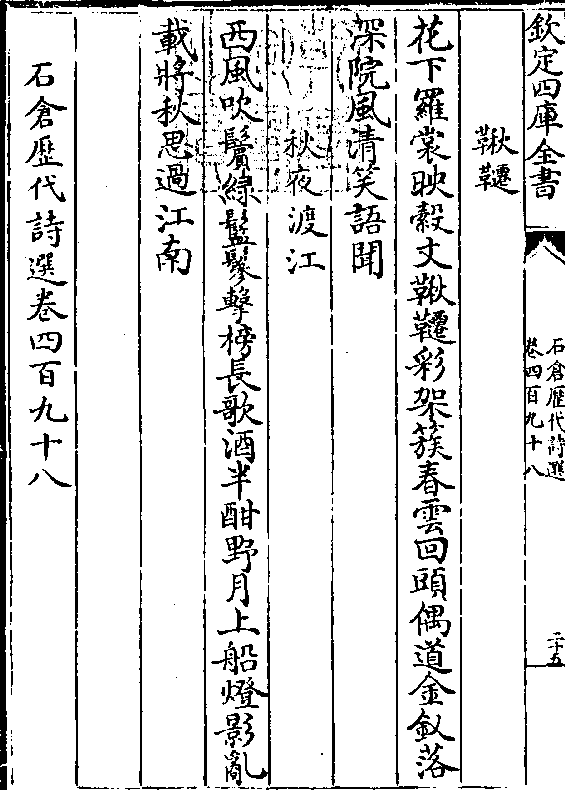 欽定四庫全書
石倉歷代詩選
卷四百九十八
二十五
鞦韆
花下羅裳映縠文鞦韆彩架簇春雲回頭偶道金釵落
深院風清笑語聞
秋夜渡江
西風吹鬢綠鬖鬖擊榜長歌酒半酣野月上船燈影亂
載將秋思過江南
石倉歷代詩選卷四百九十八